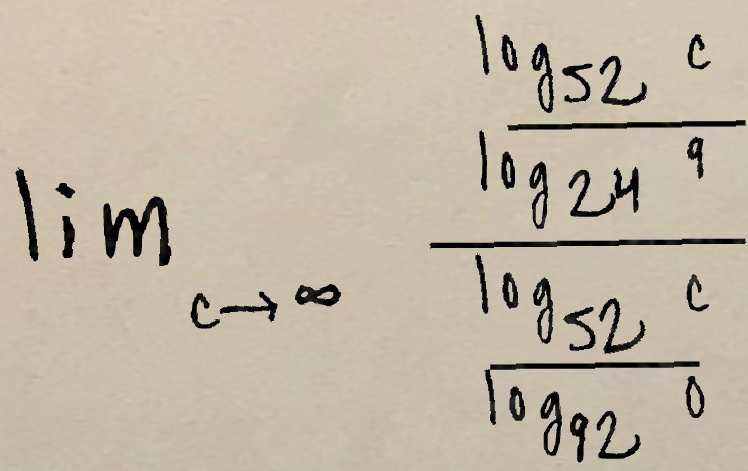 lim c→∞ \frac{\frac{\log_{52} c}{\log_{24} 9}}{\frac{\log_{52} c}{\log_{92} 0}}